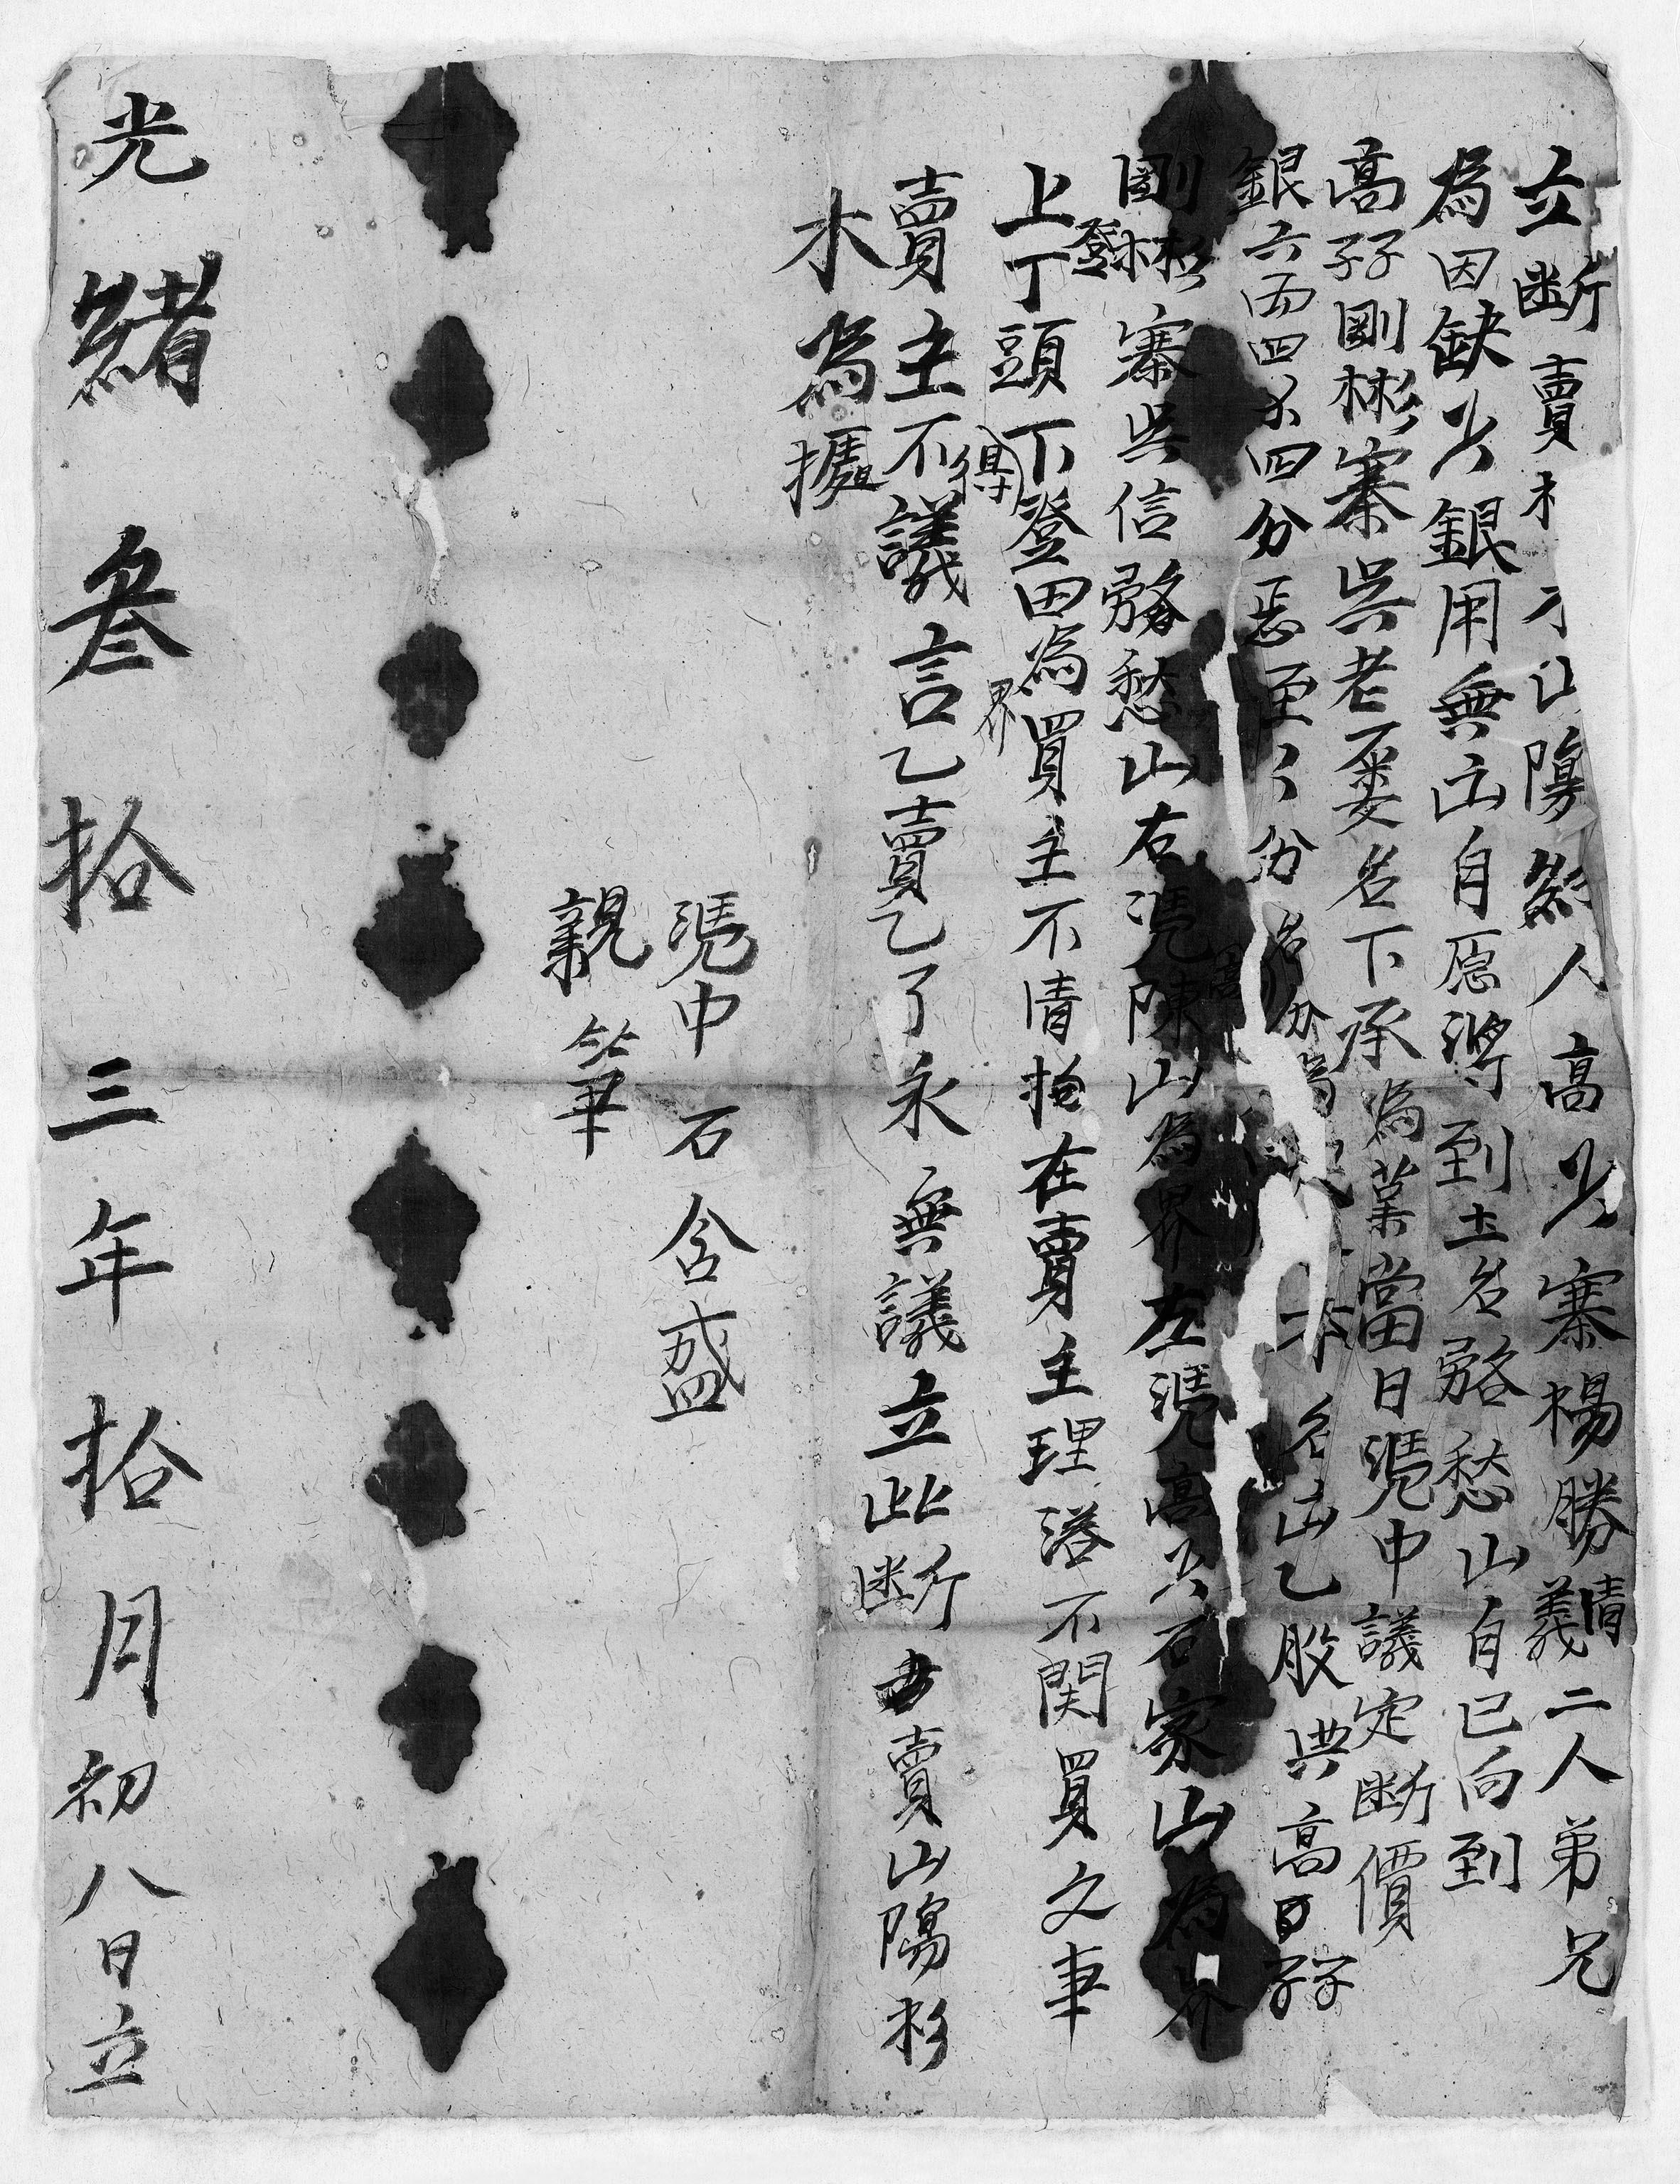 立断賣木山塲約人高少寨楊勝義清二人弟兄
為因缺少銀用無出自愿將到土名路愁山自己向到
高孖剛彬寨吳老晏名下承為業當日憑中議定断價
銀六両四分悪至分名分山乙股與高孖
剛彬寨吳信愁山右憑陳山為界左憑高石家山為界
上丁登頭下登田為界買主不清抱在賣主理落不関買之事
賣主不得議言乙賣乙了永無議立此断賣山塲杉
木為據
憑中石含盛
親筆
光緒叁拾三年拾月初八日立